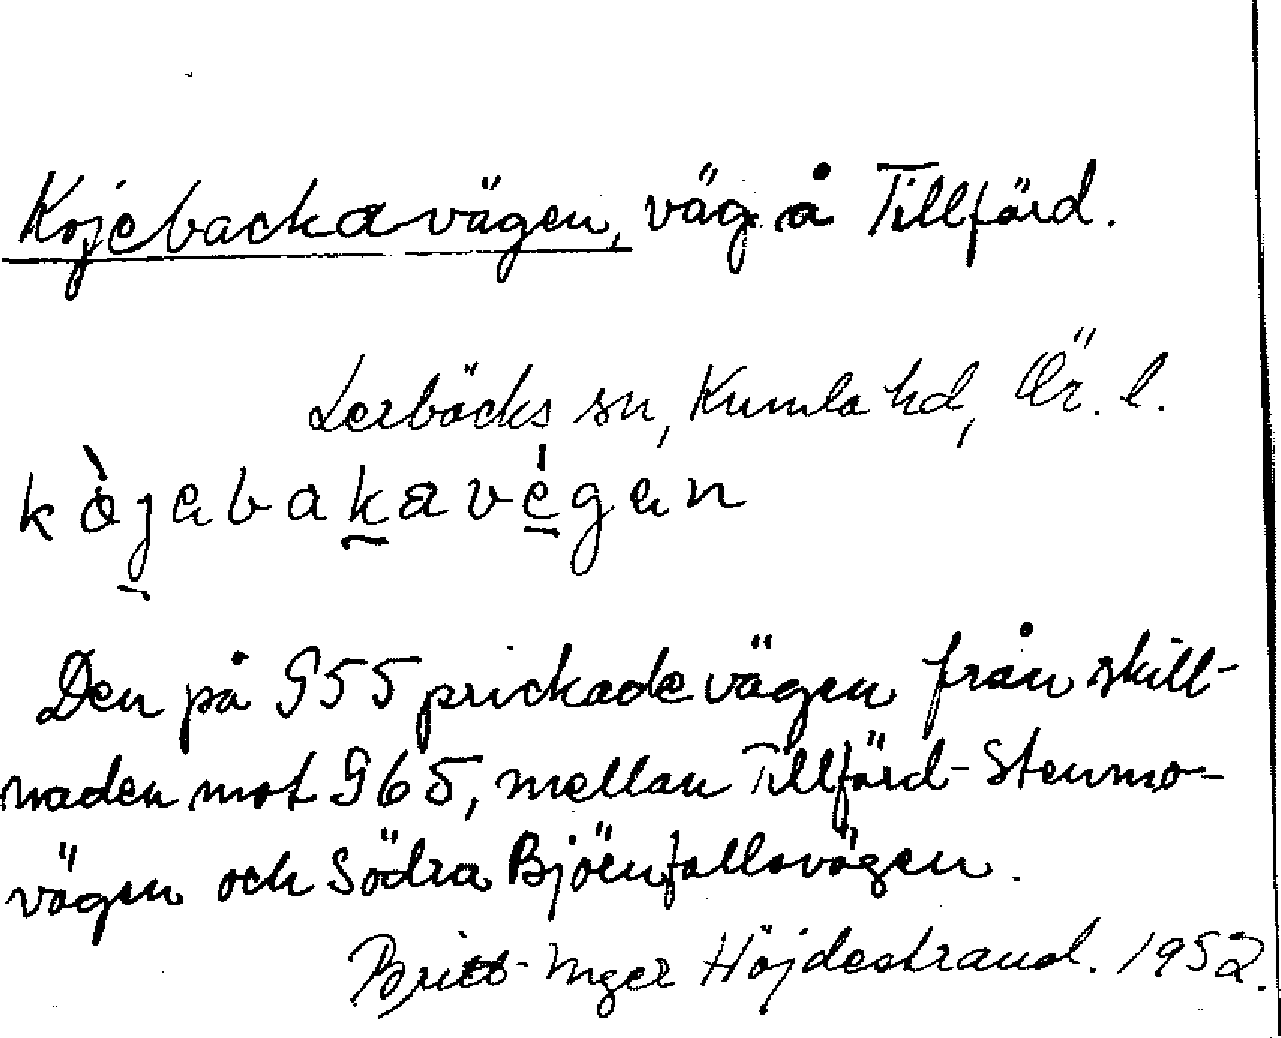 Kojebackavägen, väg å Tillförd.
Lerbäcks sn, Kumla hd, Ör. l.
kòjebakavégen
Den på 955 prickade vägen från skill-
naden mot 965, mellan Tillförd-Stenmo-
vägen och Södra Björnfallsvägen.
Britt-Inger Höjdestrand. 1952.